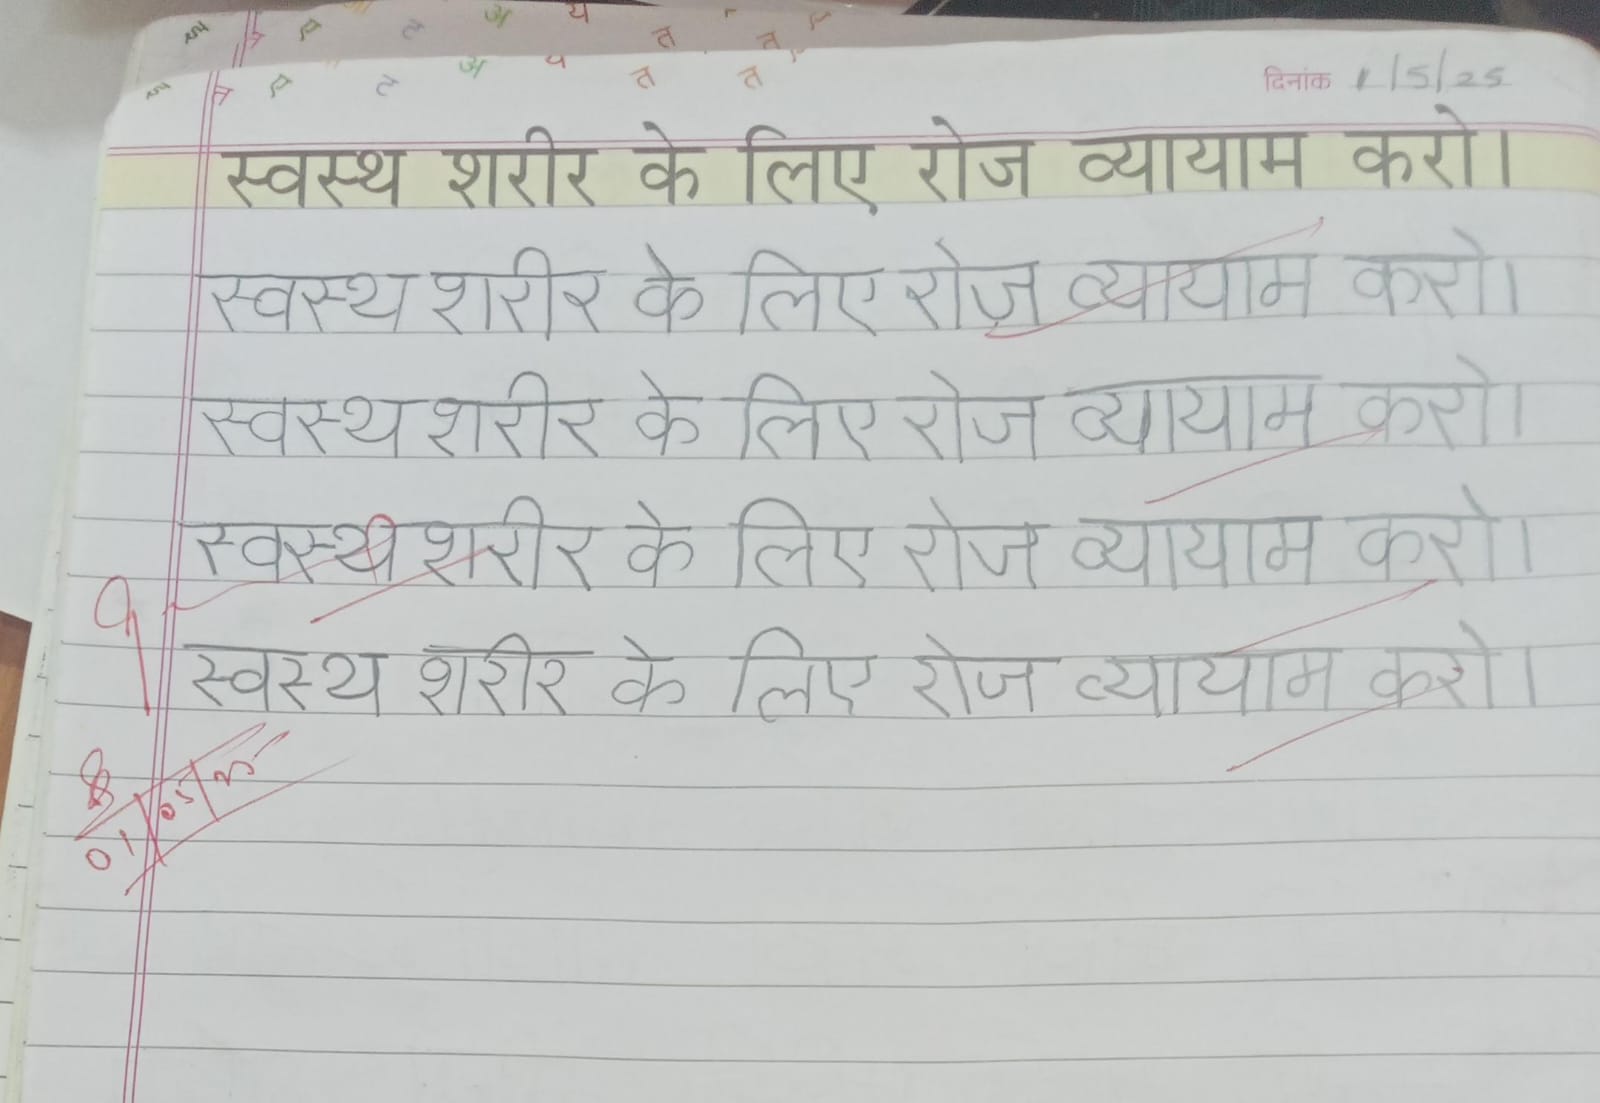 दिनांक 1/5/25
स्वस्थ शरीर के लिए रोज व्यायाम करो।
स्वस्थ शरीर के लिए रोज व्यायाम करो।
स्वस्थ शरीर के लिए रोज व्यायाम करो।
स्वस्थ शरीर के लिए रोज व्यायाम करो।
स्वस्थ शरीर के लिए रोज व्यायाम करो।
01/05/25